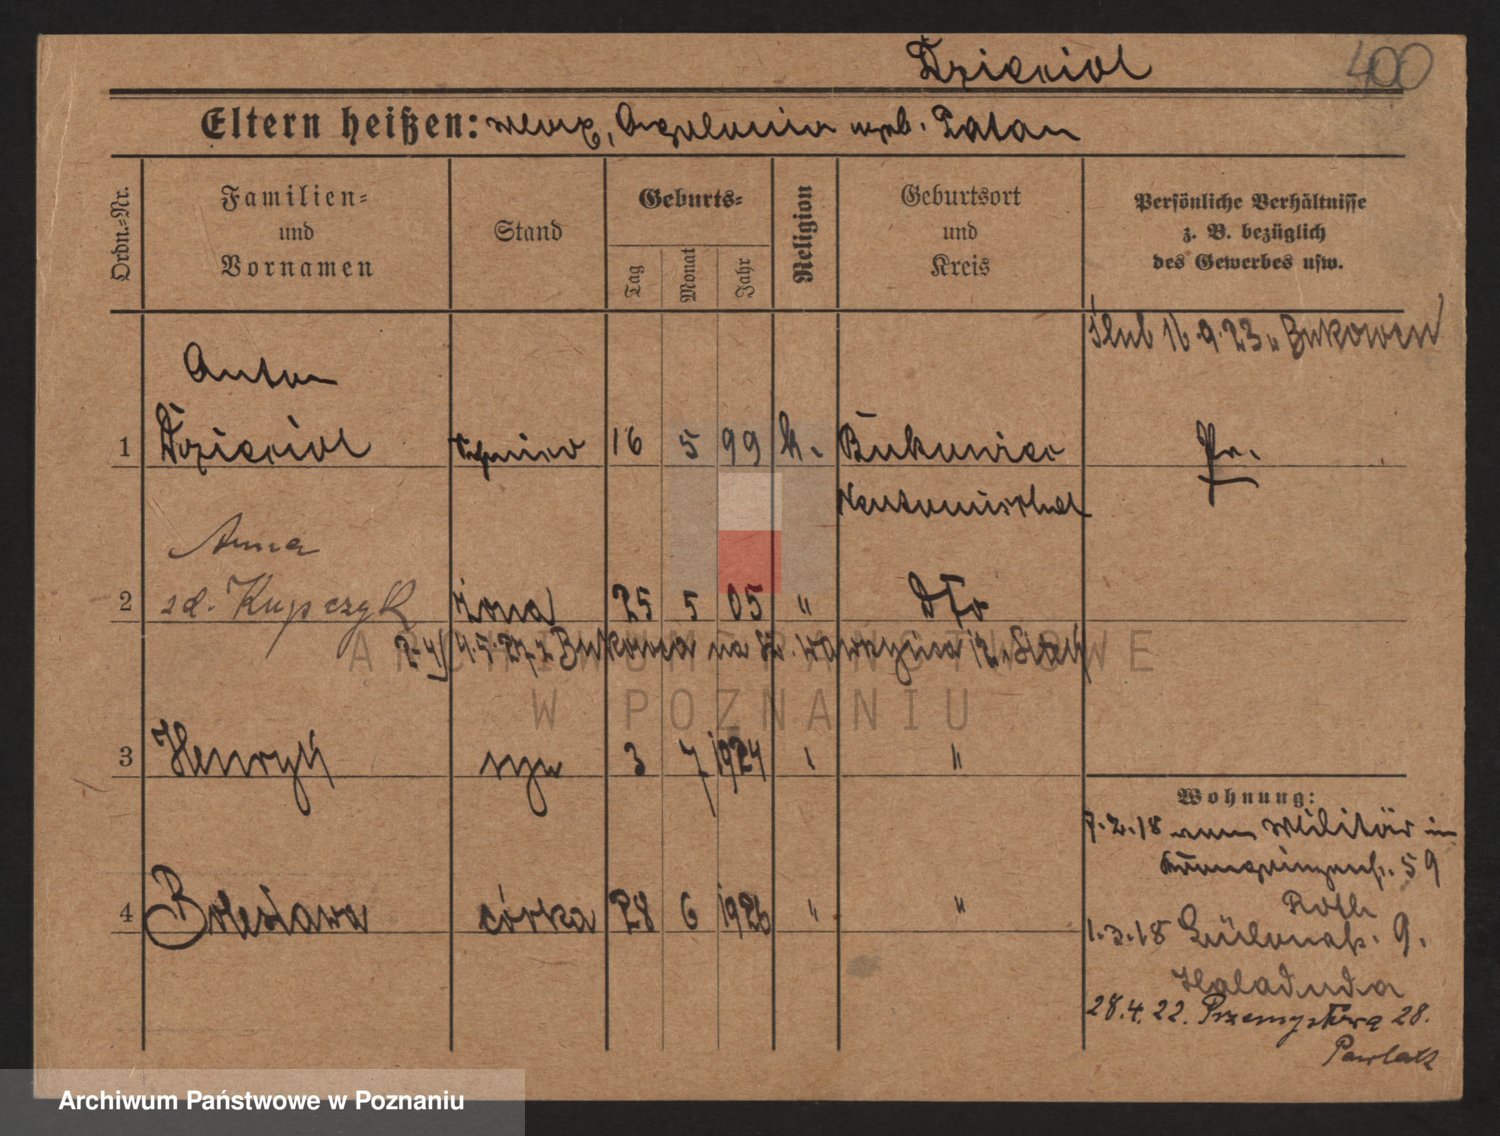 Dzieciol 400
Eltern heißen: Max, Apolonia geb. Patan
Ordn.-Nr.
Familien-
und
Vornamen
Stand
Geburts-
Tag
Monat
Jahr
Religion
Geburtsort
und
Kreis
Persönliche Verhältnisse
z. B. bezüglich
des Gewerbes usw.
Ślub 16.9.23 w Bukowcu
Anton
1 Dzieciol 16 5 99 k. Bukowiec Pr.
Neutomischel
Anna
2 zd. Kupczyk żona 25 5 05 " dto
4.5.27 z Bukowca na Św. Wawrzyńca
ARCHIWUM PAŃSTWOWE
W POZNANIU
3 Henryk syn 3 7 1924 " "
Wohnung:
7.2.18 zum Militär in
Kronprinzenstr. 59
Roth
4 Bolesława córka 28 6 1926 " "
1.3.18 9.
Haladuda
28.4.22. Przemysłowa 28.
Pawlak
Archiwum Państwowe w Poznaniu